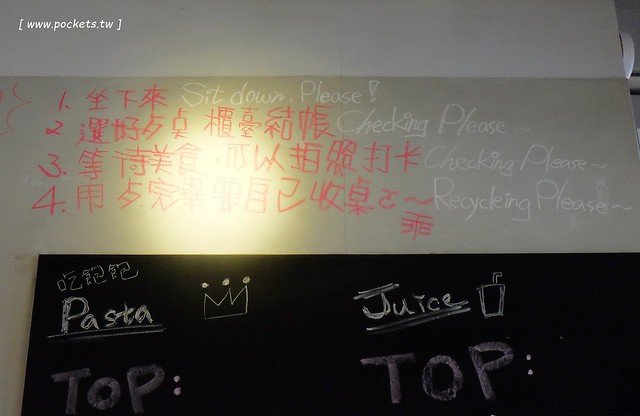 [ www.pockets.tw ]
1. 坐下來 Sit down, Please!
2. 選好歺桌 櫃臺結帳 Checking Please~
3. 等待美食,可以拍照打卡 Checking Please~
4. 用歺完畢要自己收桌ㄛ~ Recycleing Please~
乖
吃飽飽
Pasta
Juice
TOP:
TOP: